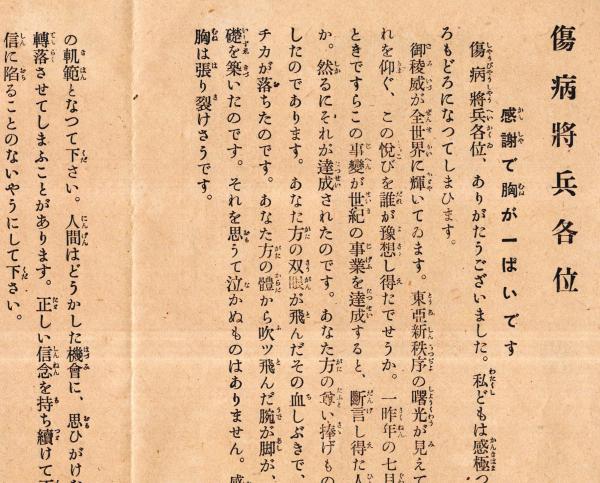 傷病將兵各位
感謝で胸が一ぱいです
傷病將兵各位、ありがたうございました。私どもは感極つ
ろもどろになつてしまひます。
御稜威が全世界に輝いてゐます。東亞新秩序の曙光が見えて
れを仰ぐ、この悅びを誰が豫想し得たでせうか。一昨年の七月
ときですらこの事變が世紀の事業を達成すると、斷言し得た人
か。然るにそれが達成されたのです。あなた方の尊い捧げもの
したのであります。あなた方の双眼が飛んだその血しぶきで、
チカが落ちたのです。あなた方の體から吹ッ飛んだ腕が脚が、
礎を築いたのです。それを思うて泣かぬものはありません。感
胸は張り裂けさうです。
の軌範となつて下さい。人間はどうかした機會に、思ひがけな
轉落させてしまふことがあります。正しい信念を持ち續けて下
信に陷ることのないやうにして下さい。